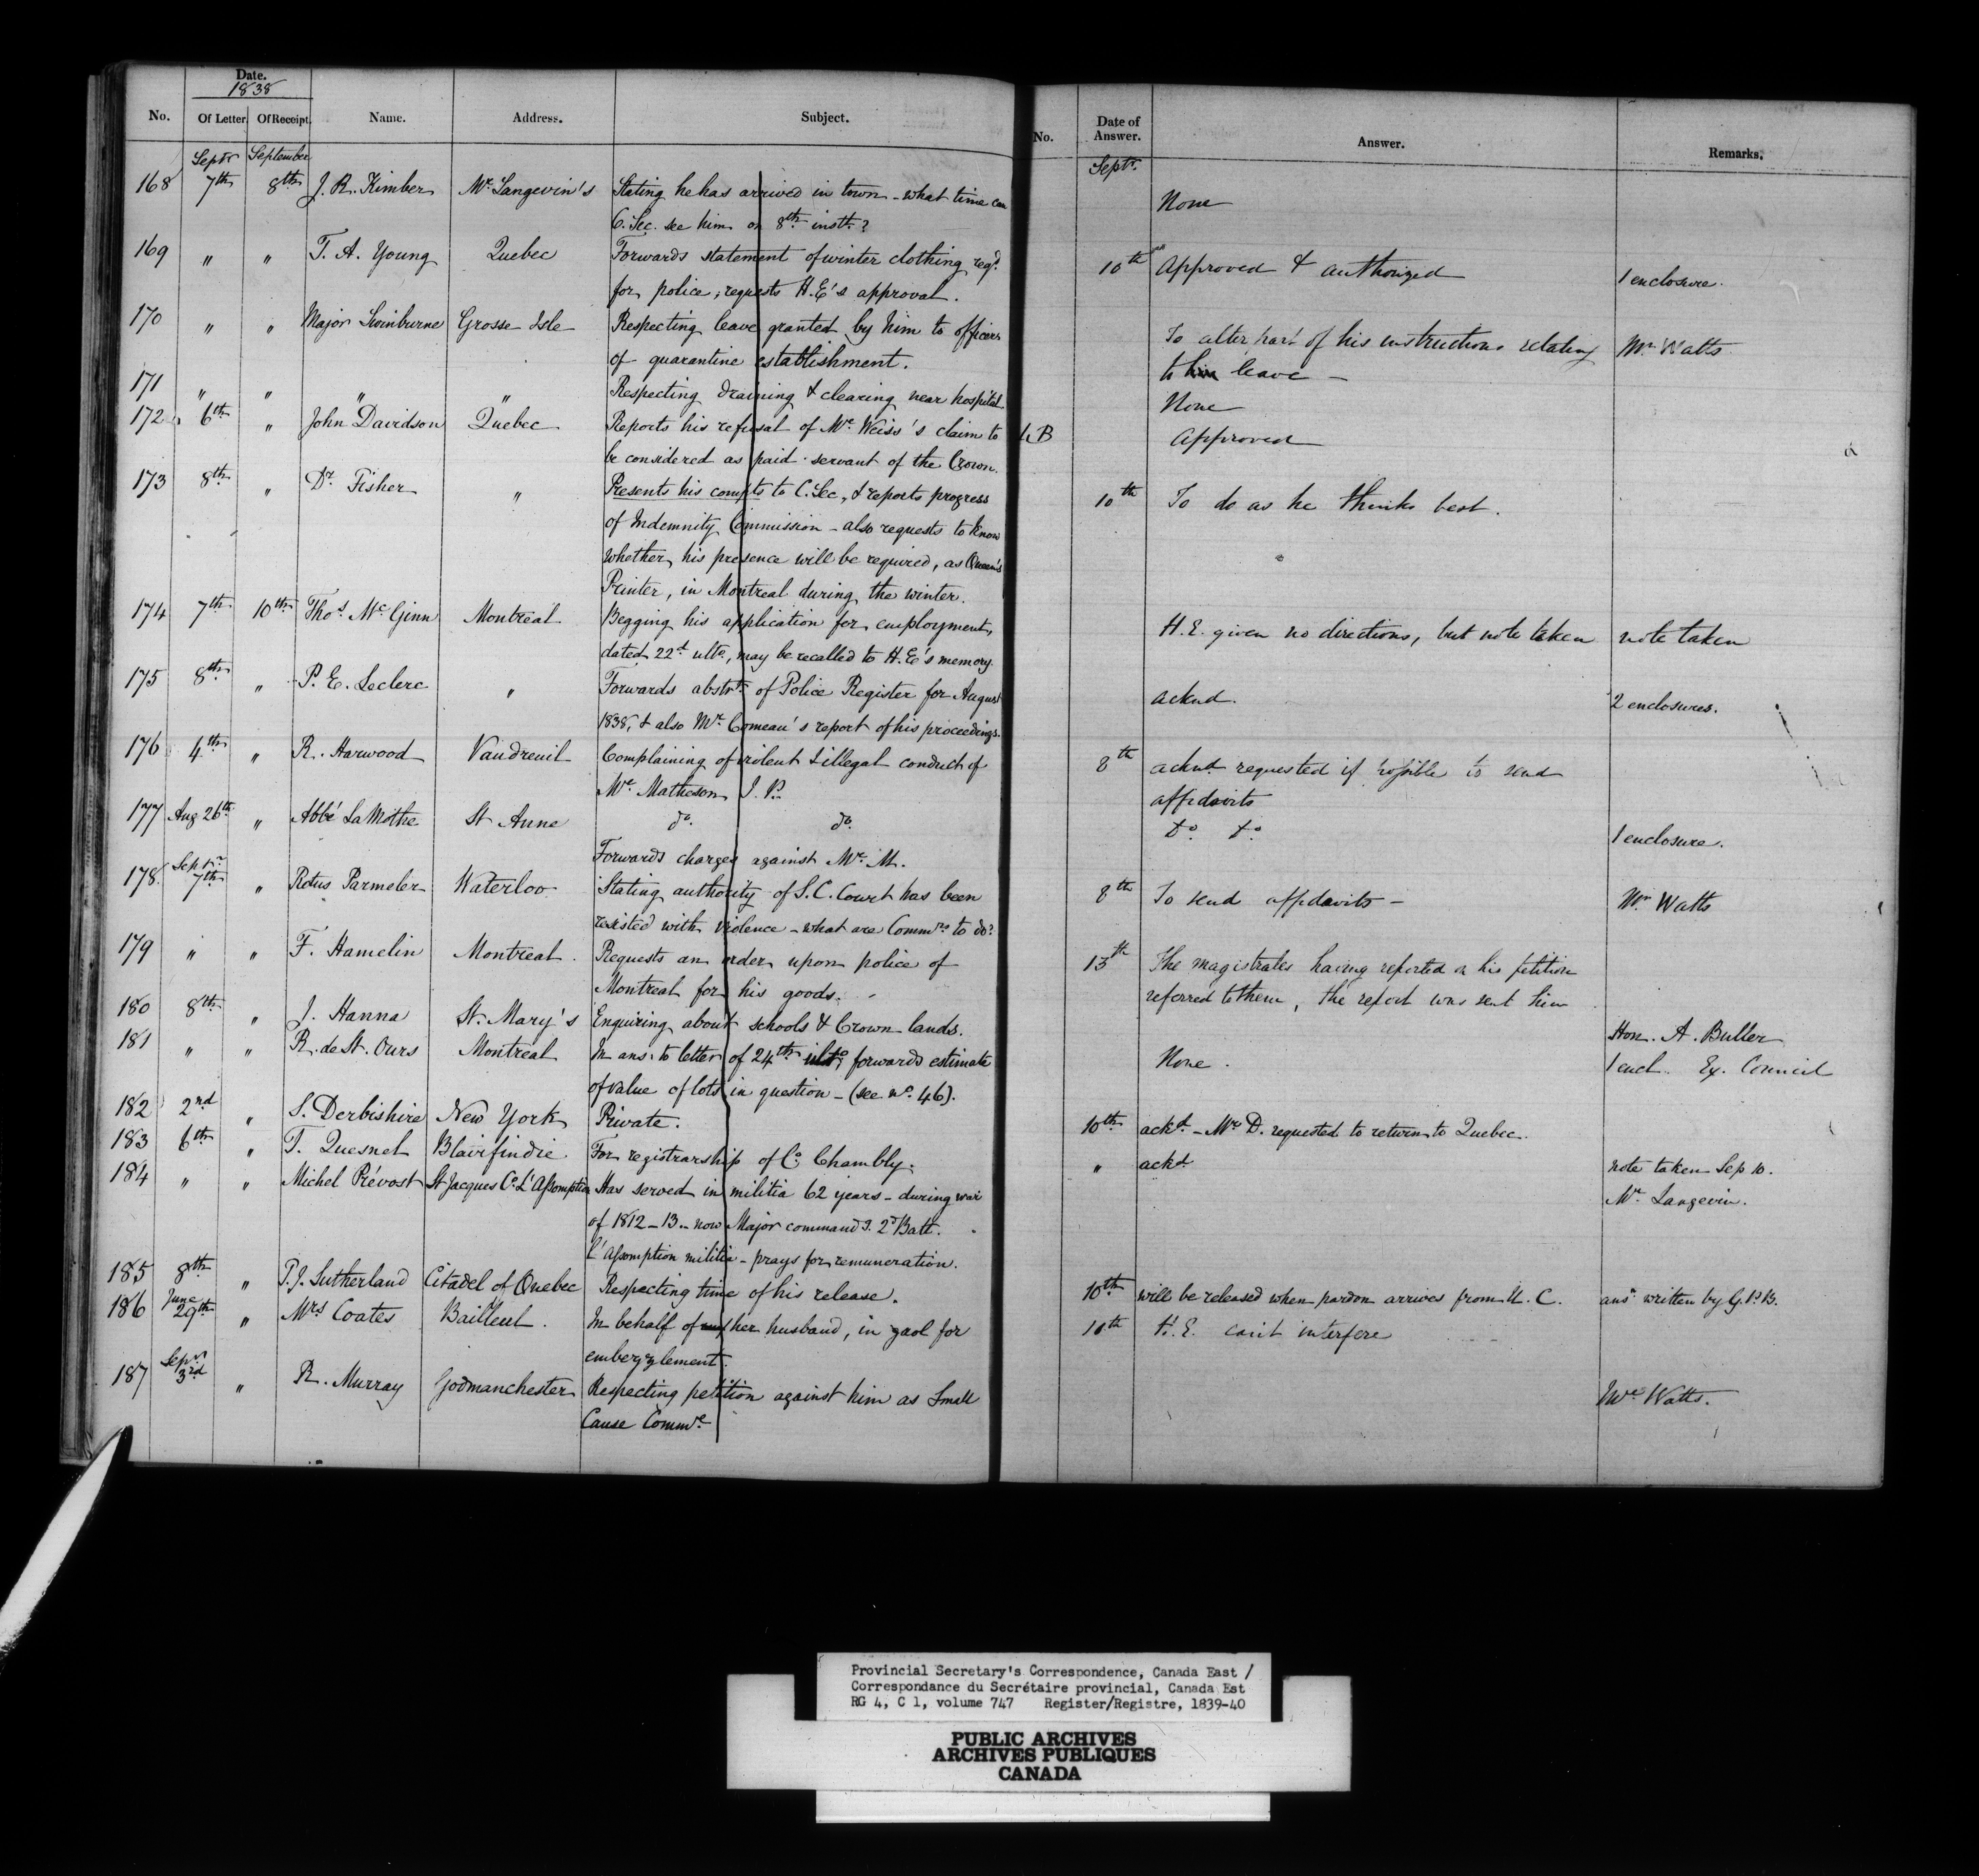 Date.
1838
No. Of Letter. Of Receipt. Name. Address. Subject. No. Date of Answer. Answer. Remarks.
Septr September Septr.
168 7th 8th J. R. Kimber Mr. Langevin's Stating he has arrived in town - what time can None
C. Sec. see him on 8th instt.?
169 " " T. A. Young Quebec Forwards statement of winter clothing reqd. 10th Approved & authorized 1 enclosure.
for police; requests H.E's approval.
170 " " Major Swinburne Grosse Isle Respecting leave granted by him to officers To alter part of his instructions relating Mr Watts
of quarantine establishment. to him leave -
171 " " " " Respecting draining & clearing near hospital. None
172 6th " John Davidson Quebec Reports his refusal of Mr. Weiss's claim to LB Approved
be considered as paid servant of the Crown.
173 8th " Dr. Fisher " Presents his compts to C. Sec., & reports progress 10th To do as he thinks best.
of Indemnity Commission - also requests to know
whether his presence will be required, as Queen's
Printer, in Montreal during the winter.
174 7th 10th Thos. McGinn Montreal Begging his application for employment, H.E. given no directions, but note taken note taken
dated 22d ulto., may be recalled to H.E's memory.
175 8th " P. E. Leclerc " Forwards abstrt. of Police Register for August acknd. 2 enclosures.
1838, & also Mr. Comeau's report of his proceedings.
176 4th " R. Harwood Vaudreuil Complaining of violent & illegal conduct of 8th acknd. requested if possible to send
Mr. Matheson J. P. affidavits
177 Aug 26th " Abbé LaMothe St Anne do. do. Do. Do. 1 enclosure.
Forwards charges against Mr. M.
178 Septr 7th " Rotus Parmeler Waterloo Stating authority of S.C. Court has been 8th To send affidavits - Mr Watts
resisted with violence - what are Commrs. to do?
179 " " F. Hamelin Montreal Requests an order upon police of 13th The magistrates having reported on his petition
Montreal for his goods. referred to them, the report was sent him
180 8th " J. Hanna St. Mary's Enquiring about schools & Crown lands. Hon. A. Buller
181 " " R. de St. Ours Montreal In ans. to letter of 24th ulto, forwards estimate None. 1 encl. Ex. Council
of value of lots in question - (see no. 46).
182 2nd " S. Derbishire New York Private. 10th. ackd. - Mr D. requested to return to Quebec.
183 6th " T. Quesnel Blairfindie For registrarship of Co. Chambly. " ackd. note taken Sep 10.
184 " " Michel Prévost St Jacques Co. L'Assomption Has served in militia 62 years - during war Mr. Langevin.
of 1812-13 - now Major commandg. 2d Batt.
L'Assomption militia - prays for remuneration.
185 8th " T. J. Sutherland Citadel of Quebec Respecting time of his release. 10th. will be released when pardon arrives from U. C. ansr. written by G.P.B.
186 June 29th " Mrs Coates Bailleul. In behalf of her husband, in gaol for 10th H.E. can't interfere
embezzlement.
187 Sepr. 3rd " R. Murray Godmanchester Respecting petition against him as Small Mr. Watts.
Cause Commr.
Provincial Secretary's Correspondence, Canada East /
Correspondance du Secrétaire provincial, Canada Est
RG 4, C 1, volume 747 Register/Registre, 1839-40
PUBLIC ARCHIVES
ARCHIVES PUBLIQUES
CANADA